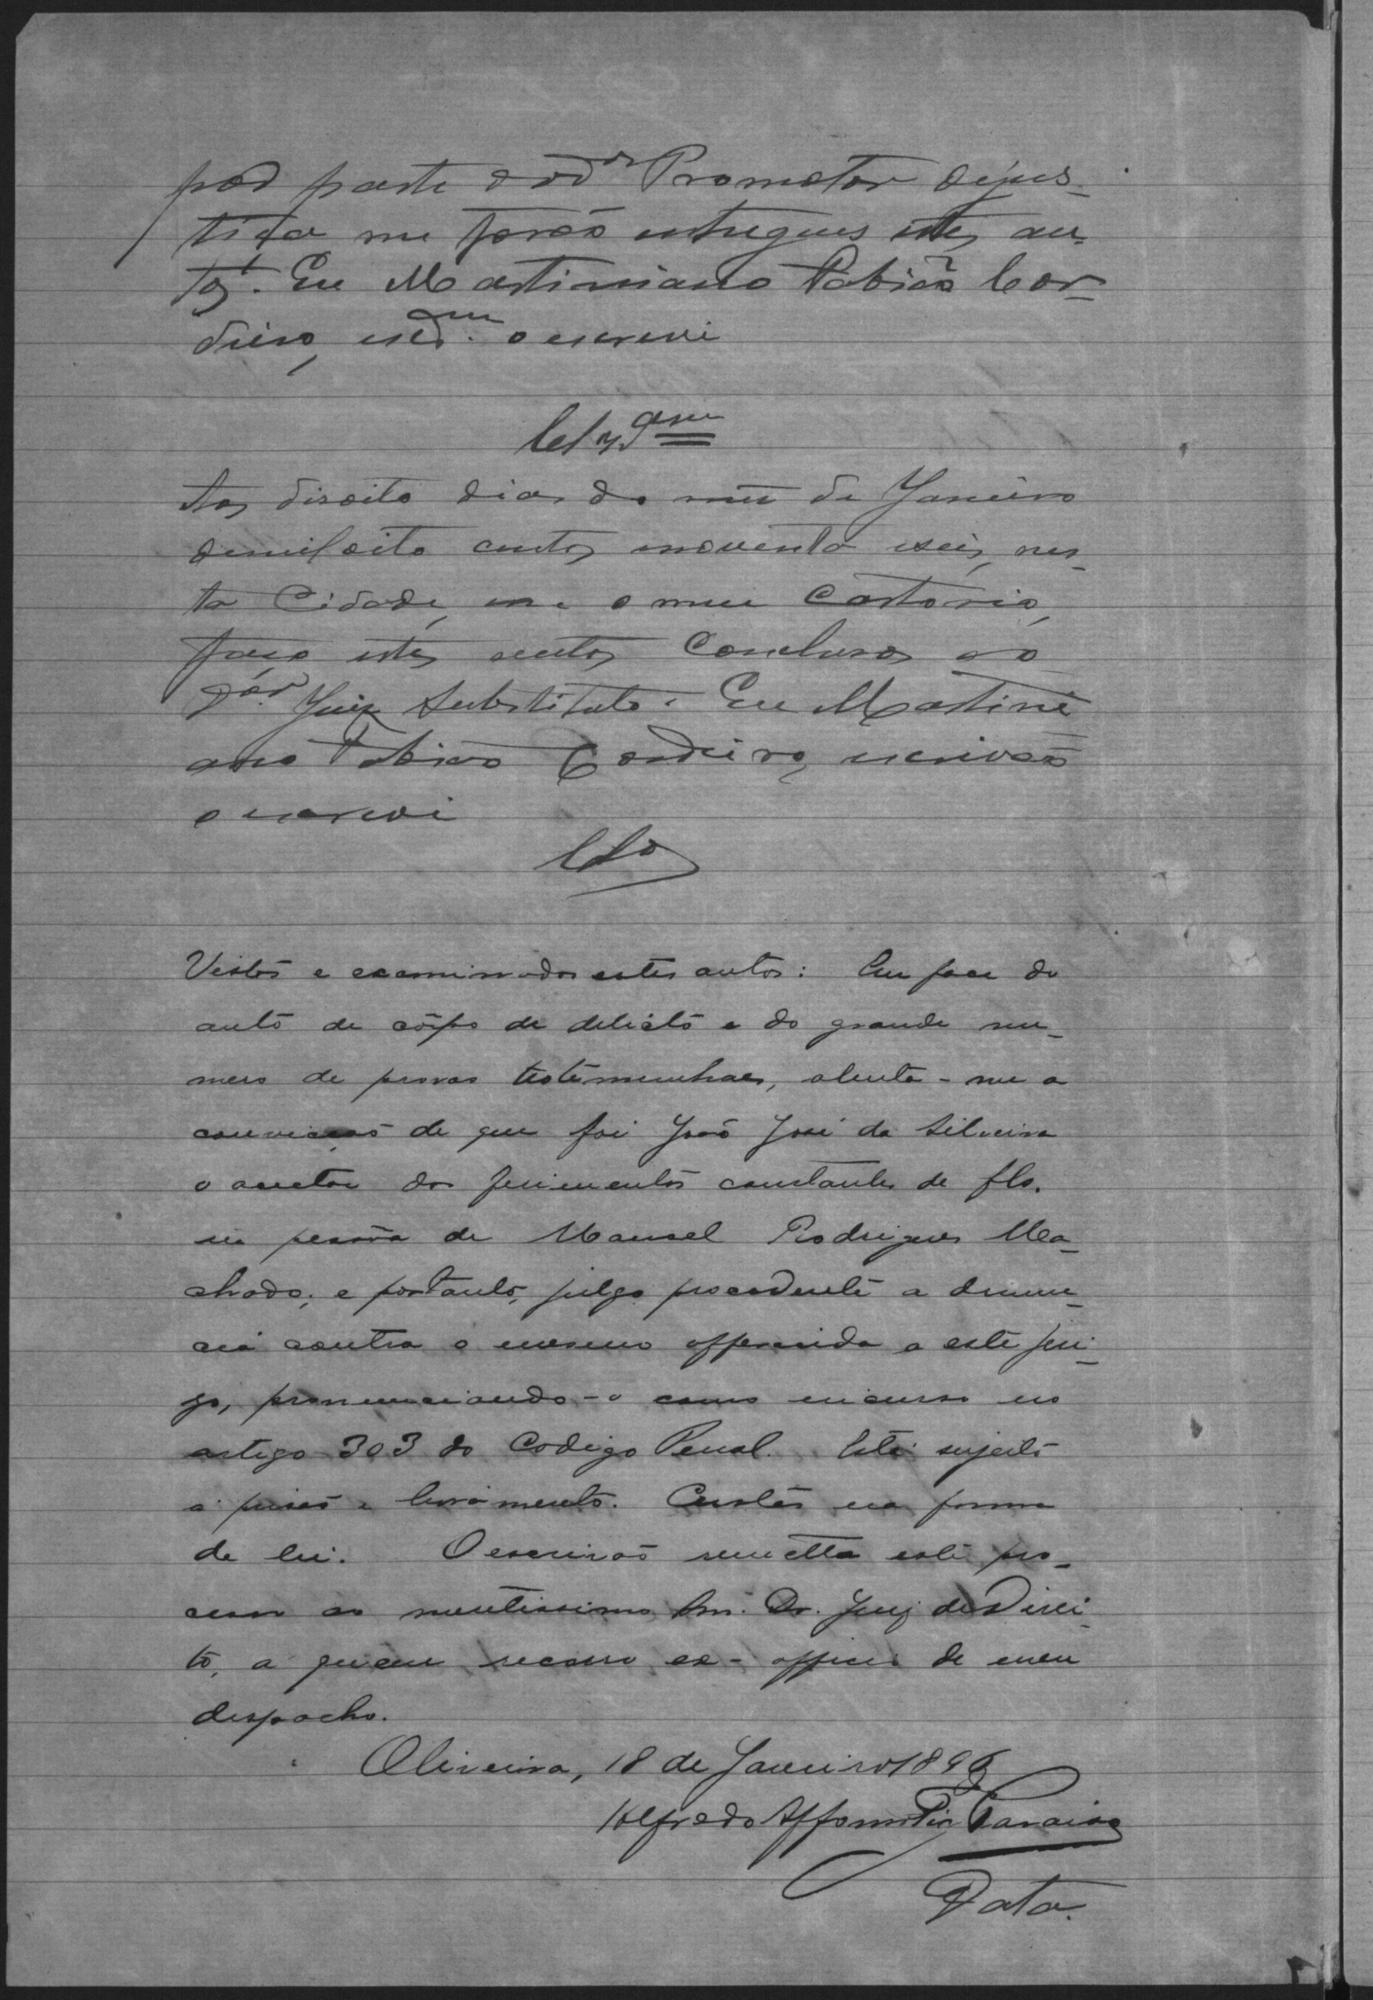 por parte do Dr Promotor dejus-
tiça me forão entregues estes au-
tos. Eu Martiniano Fabião Cor-
deiro, escram. o escrevi
Clsam
Aos disoito dias do mez de Janeiro
demil oito centos enoventa eseis, nes-
ta Cidade, em o meu Cartorio,
faço estes autos Conclusos ao
Dor. Juiz Substituto. Eu Martini
ano Fabião Cordeiro, escrivão
o escrevi
Clso
Vistos e examinados estes autos: Em face do
auto de côrpo de delicto e do grande nu-
mero de provas testemunhaes, alenta-me a
convicção de que foi João José da Silveira
o auctor dos ferimentos constantes de fls.
na pessôa de Manoel Rodrigues Ma-
chado; e portanto, julgo procedente a denun-
cia contra o mesmo offerecida a este jui-
zo, pronunciando-o como incurso no
artigo 303 do Codigo Penal. Está sujeito
a prisão e livramento. Custas na forma
de lei. O escrivão remetta este pro-
cesso ao meretissimo Snr. Dr. Juiz de Direi-
to, a quem recorro ex-officio de meu
despacho.
Oliveira, 18 de Janeiro 1896
Alfredo Affonso Paraizo
Data.